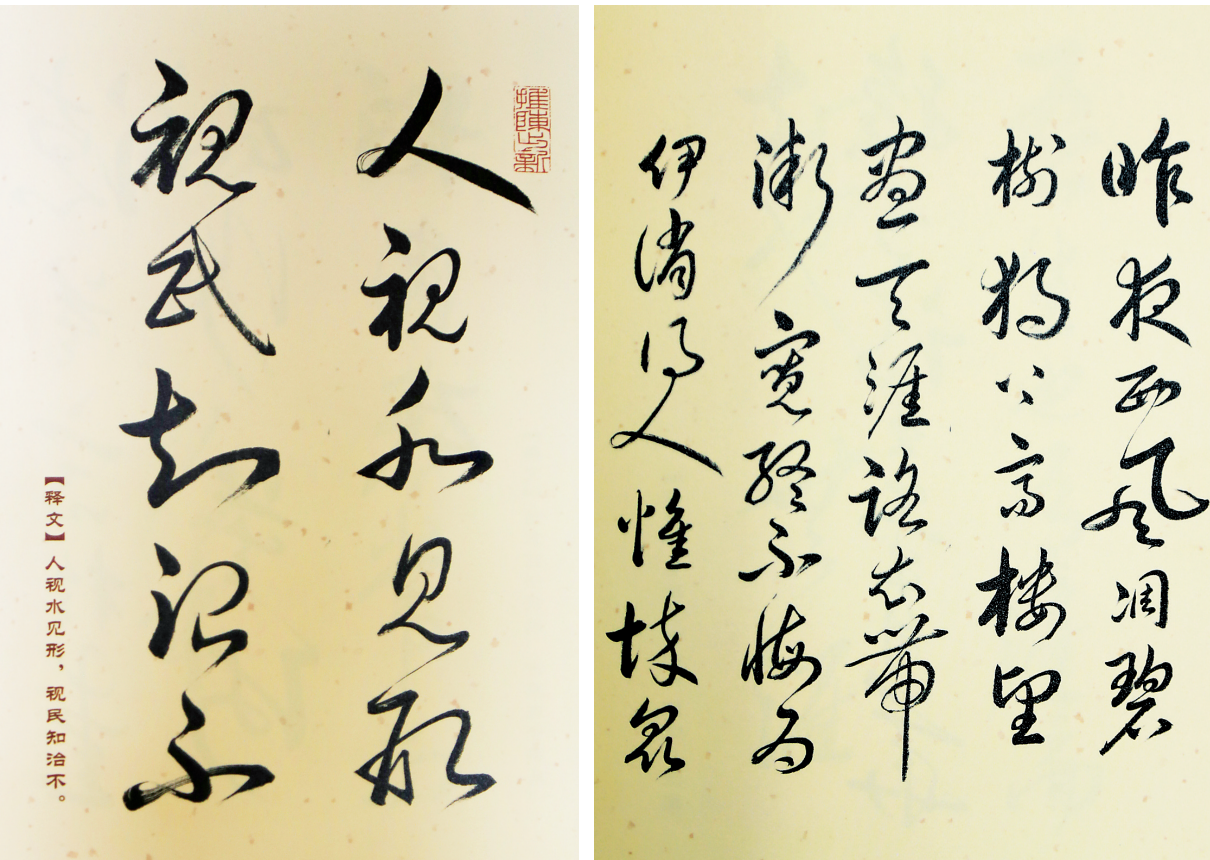 推陳出新
人视水见形
视民知治不
【释文】人视水见形，视民知治不。
昨夜西风凋碧
树独上高楼望
尽天涯路衣带
渐宽终不悔为
伊消得人憔悴众